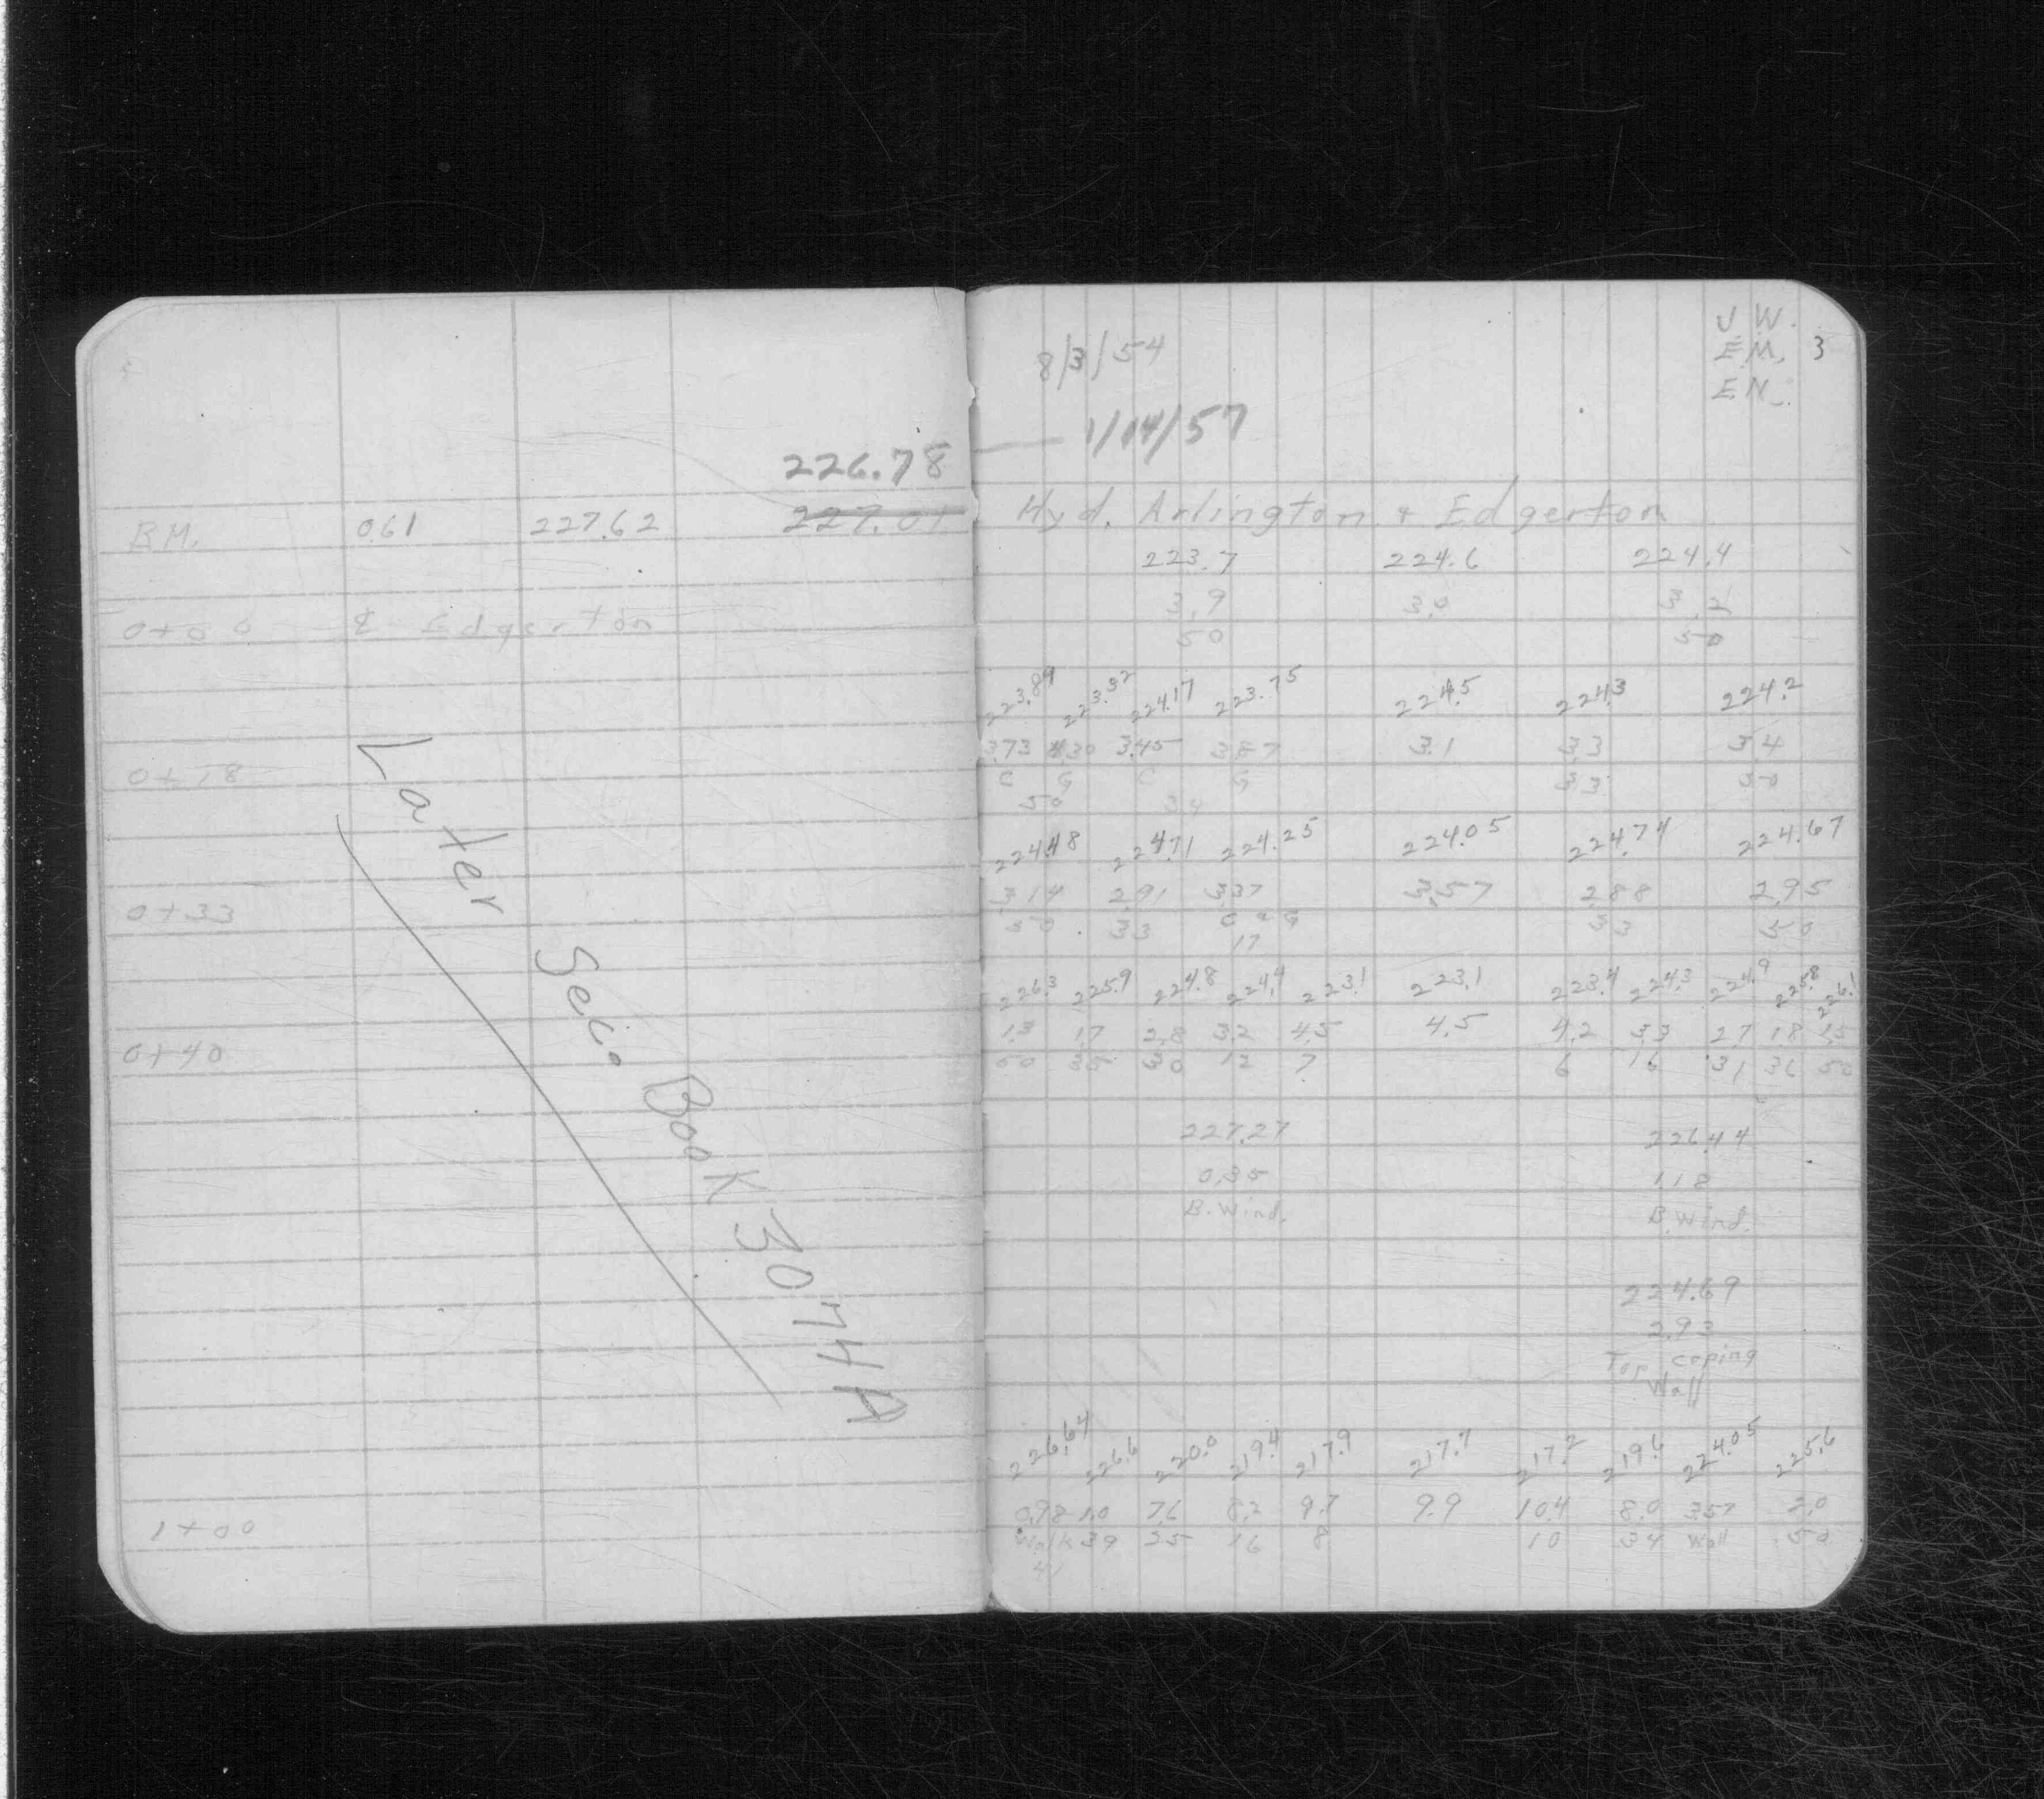 226.78
B.M. 0.61 227.62 227.01
0+00 ℄ Edgerton
0+18
0+33
0+40
1+00
Later Sec. Book 3074A
J.W.
E.M. 3
E.N.
8/3/54
1/14/57
Hyd. Arlington & Edgerton
223.7 224.6 224.4
3.9 3.0 3.2
50 50
223.89 223.32 224.17 223.75 224.5 224.3 224.2
3.73 4.30 3.45 3.87 3.1 3.3 3.4
C G C G 33 50
50 34
224.48 224.71 224.25 224.05 224.74 224.67
3.14 2.91 3.37 3.57 2.88 2.95
50 33 C & G 33 50
17
226.3 225.9 224.8 224.4 223.1 223.1 223.4 224.3 224.9 225.8 226.1
1.3 1.7 2.8 3.2 4.5 4.5 4.2 3.3 2.7 1.8 1.5
50 35 30 12 7 6 16 31 36 50
227.27 226.44
0.35 1.18
B. Wind. B. Wind.
224.69
2.93
Top coping
Wall
226.64 226.6 220.0 219.4 217.9 217.7 217.2 219.6 224.05 225.6
0.98 1.0 7.6 8.2 9.7 9.9 10.4 8.0 3.57 2.0
Walk 39 25 16 8 10 34 Wall 50
41